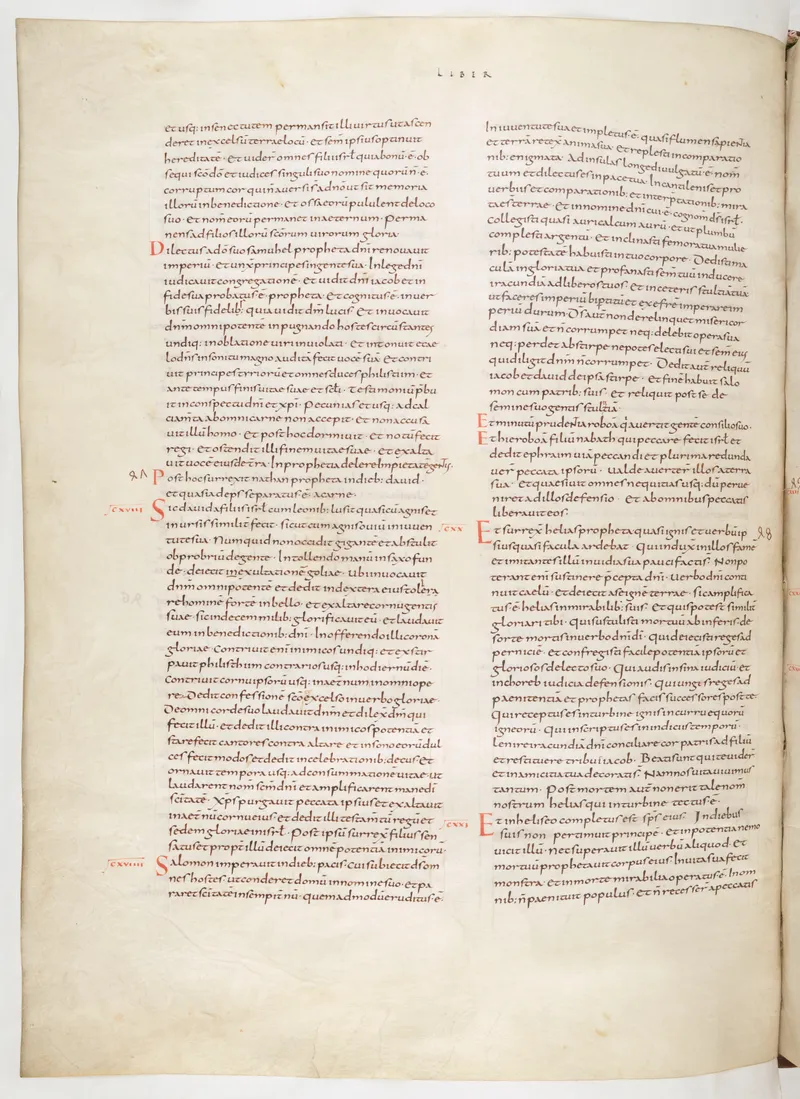 LIBER
et usq: in senectutem permansit illi uirtus ut ascen
deret in excelsū terrae locū · et sem̄ ipsius optinuit
hereditatē · et uider̄ omnes filii isrl quia bonū ē ob
sequi sc̄o dō et iudices singuli suo nomine quorū n̄ ē
corruptum cor qui n̄ auersi s̄ a dn̄o ut sit memoria
illorū in benedictione · et ossa eorū pululent de loco
suo · et nom̄ eorū permanet in aeternum · perma
nens ad filios illorū sc̄orum uirorum gloria ·
Dilectus a dō suo samuhel propheta dn̄i renouauit
imperiū · et unx̄ principes in gente sua · In lege dn̄i
iudicauit congregationē · et uidit dn̄s iacob et in
fide sua probatus ē propheta · et cognitus ē in uer
bis suis fidelis quia uidit dn̄m lucis · et inuocauit
dn̄m omnipotente in pugnando hostes circūstantes
undiq: in oblatione uiri inuiolati · et intonuit e cae
lo dn̄s in sonitu magno auditā fecit uocē suā et contri
uit principes tyriorū et omnes duces philistium · et
ante tempus finis uitae suae et sc̄li · testimoniū p̄bu
it in conspectu dn̄i et xp̄i · pecunias et usq: ad cal
ciam̄ta ab omni carne non accepit · et non accusa
uit illū homo · et post hoc dormiuit · et notū fecit
regi · et ostendit illi finem uitae suae · et exalta
uit uocē eius de t̄ra · In prophetia delere Impietatē gentis ·
Post hoc surrexit nathan propheta in dieb: dauid ·
et quasi adeps separatus ē a carne ·
cxuiii
Sic dauid a filiis isrl cum leonib: lusit quasi cū agnis et
in ursis similit̄ fecit · sicut cum agnis ouiū in iuuen
tute sua · Numquid non occidit gigantē et abstulit
obprobriū de gente · In tollendo manū in saxo fun
de · deiecit in exultationē goliae · ubi inuocauit
dn̄m omnipotente et dedit in dextera eius tollera
re hominē forte in bello · et exaltare cornu gentis
suae · sic in decem milib: glorificauit eū · et laudauit
eum in benedictionib: dn̄i · In offerendo illi corona
gloriae · Contriuit eni inimicos undiq: et extir
pauit philistbim contrarios usq: in hodiernū diē ·
Contriuit cornu ipsorū usq: in aet̄num in omni ope
re · Dedit confessionē sc̄o excelso in uerbo gloriae ·
De omni corde suo laudauit dn̄m et dilex̄ dm̄ qui
fecit illū · et dedit illi contra inimicos potentiā et
stare fecit cantores contra altare · et in sono eorū dul
ces fecit modos et dedit in celebrationib: decus et
ornauit tempora usq: ad consummationē uitae · ut
laudarent nom̄ sc̄m dn̄i et amplificarent mane dī
sc̄itatē · xp̄s purgauit peccata ipsius et exaltauit
in aet̄nū cornu eius et dedit illi testam̄tū regū et
sedem gloriae in isrl · Post ipsū surrex̄ filius sen
satus et propt̄ illū deiecit omnē potentiā inimicorū ·
cxuiiii
Salomon imperauit in dieb: pacis · cui subiecit ds̄ om
nes hostes · ut conderet domū in nomine suo · et pa
raret sc̄itatē in sempit̄nū · quemadmodū eruditus ē ·
In iuuentute sua et impletus ē quasi flumen sapientia
et terrā retex̄ anima sua et replesti in comparatio
nib: enigmata · Ad insulas longe diuulgatū ē nom̄
tuum et dilectus es in pace tua · In cantilenis et pro
uerbiis et comparationib: et interp̄tationib: mira
tae s̄ terrae · et in nomine dn̄i cui ē cognom̄ ds̄ isrl ·
collegisti quasi auricalcum aurū · et ut plumbū
complesti argentū · et inclinasti femora tua mulie
rib: potestatē habuisti in tuo corpore · Dedisti ma
culā in gloria tua et profanasti sem̄ tuū inducere
iracundiā ad liberos tuos · et in ceteris stultitiā tuā
ut faceres imperiū bipartitū et ex efrē imperare im
periū durum · Ds̄ aūt non derelinquet misericor
diam suā et n̄ corrumpet neq: delebit opera sua
neq: perdet ab stirpe nepotes electi sui et sem̄ eius
qui diligit dn̄m n̄ corrumpet · Dedit aūt reliquū
iacob et dauid de ipsa stirpe · et finē habuit salo
mon cum patrib: suis · et reliquit post se · de
semine suo gentis stultitiā ·
Et minutū prudentia roboā q̄ auertit gente consilio suo ·
Et hieroboā filiū nabath qui peccare fecit isrl et
dedit ephraim uiā peccandi et plurima redunda
uer̄ peccata ipsorū · ualde auerter̄ illos a terra
sua · et quaesiuit omnes nequitias usq: dū perue
niret ad illos defensio · et ab omnibus peccatis
liberauit eos ·
cxx
Et surrex̄ helias propheta quasi ignis et uerbū ip
sius quasi facula ardebat · Qui indux̄ in illos fame
et imitantes illū inuidia sua pauci facti s̄ · Non po
terant eni sustinere p̄cepta dn̄i · uerbo dn̄i conti
nuit caelū · et deiecit a se ignē terrae · sic amplifica
tus ē helias in mirabilib: suis · et qui potest similit̄
gloriari tibi · qui sustulisti mortuū ab inferis de
sorte mortis in uerbo dn̄i dī · qui deiecisti reges ad
perniciē · et confregisti facile potentiā ipsorū et
gloriosos de lecto suo · Qui audis in sina iudiciū et
in choreb iudicia defensionis · Qui ungis reges ad
paenitentiā et prophetas facis successores post te ·
Qui receptus es in turbine ignis in curru equorū
igneorū · Qui inscriptus es in iudiciis temporū ·
Lenire iracundiā dn̄i conciliare cor patris ad filiū
et restituere tribus iacob · Beati s̄ qui te uider̄
et in amicitia tua decorati s̄ · Nam nos uita uiuimus
tantum · Post mortem aūt non erit tale nom̄
nostrum helias qui in turbine tectus ē ·
cxxi
Et in heliseo completus est sp̄s eius · In diebus
suis non pertimuit principē · et in potentia nemo
uicit illū · Nec superauit illū uerbū aliquod · et
mortuū prophetauit corpus eius · In uita sua fecit
monstra · et in morte mirabilia operatus ē · In om
nib: n̄ paenituit populus · et n̄ recesser̄ a peccatis